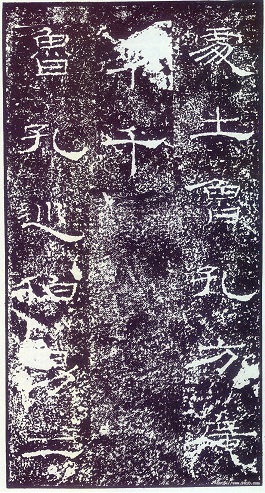 處士魯孔方廣
千
魯孔巡伯男二